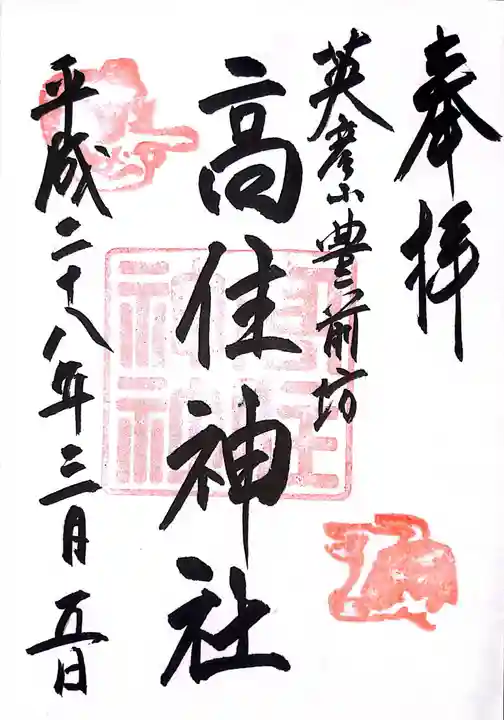 奉拝
英彦山豊前坊
高住神社
平成二十八年三月五日
高住神社